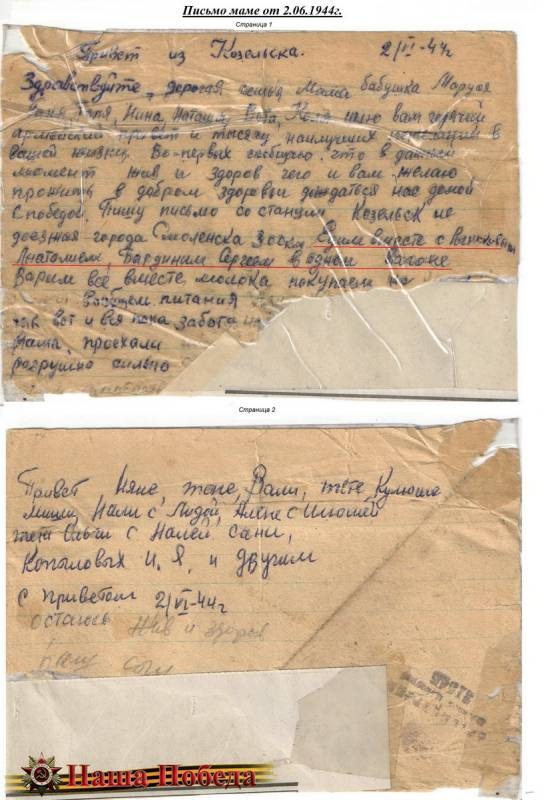 Письмо маме от 2.06.1944г.
Страница 1
Привет из Козельска. 2/VI-44г
Здравствуйте, дорогая семья Мама бабушка Маруся
Толя, Нина, Наташа, Вова, Коля шлю вам горячий
армейский привет и тысячу наилучших пожеланий в
вашей жизни. Во-первых сообщаю, что в данный
момент жив и здоров чего и вам желаю
прожить в добром здоровьи дождаться нас домой
с победой. Пишу письмо со станции Козельск не
доезжая города Смоленска Едим вместе с
Анатолием, Бардиным Сергеем в одном вагоне
Варим все вместе, молока покупаем на
и вообщем питания
так вот и вся пока забота
Мама, проехали
разрушно сильно
Страница 2
Привет Няне, тоне, Вали, тете
Мишы, Нали с Лидой,
тети Ольги с Налей, Сани,
Копыловых И. Я. и другим
с приветом 2/VI-44г
остаюсь жив и здоров
Наша Победа